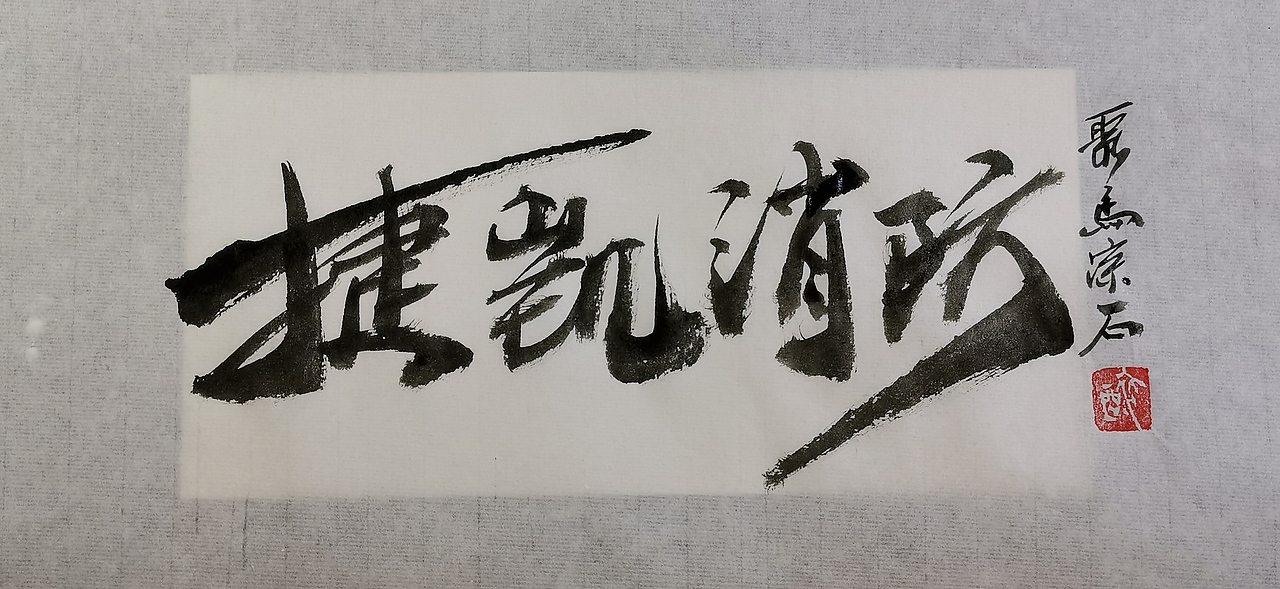 捷凯消防
聚馬宗石